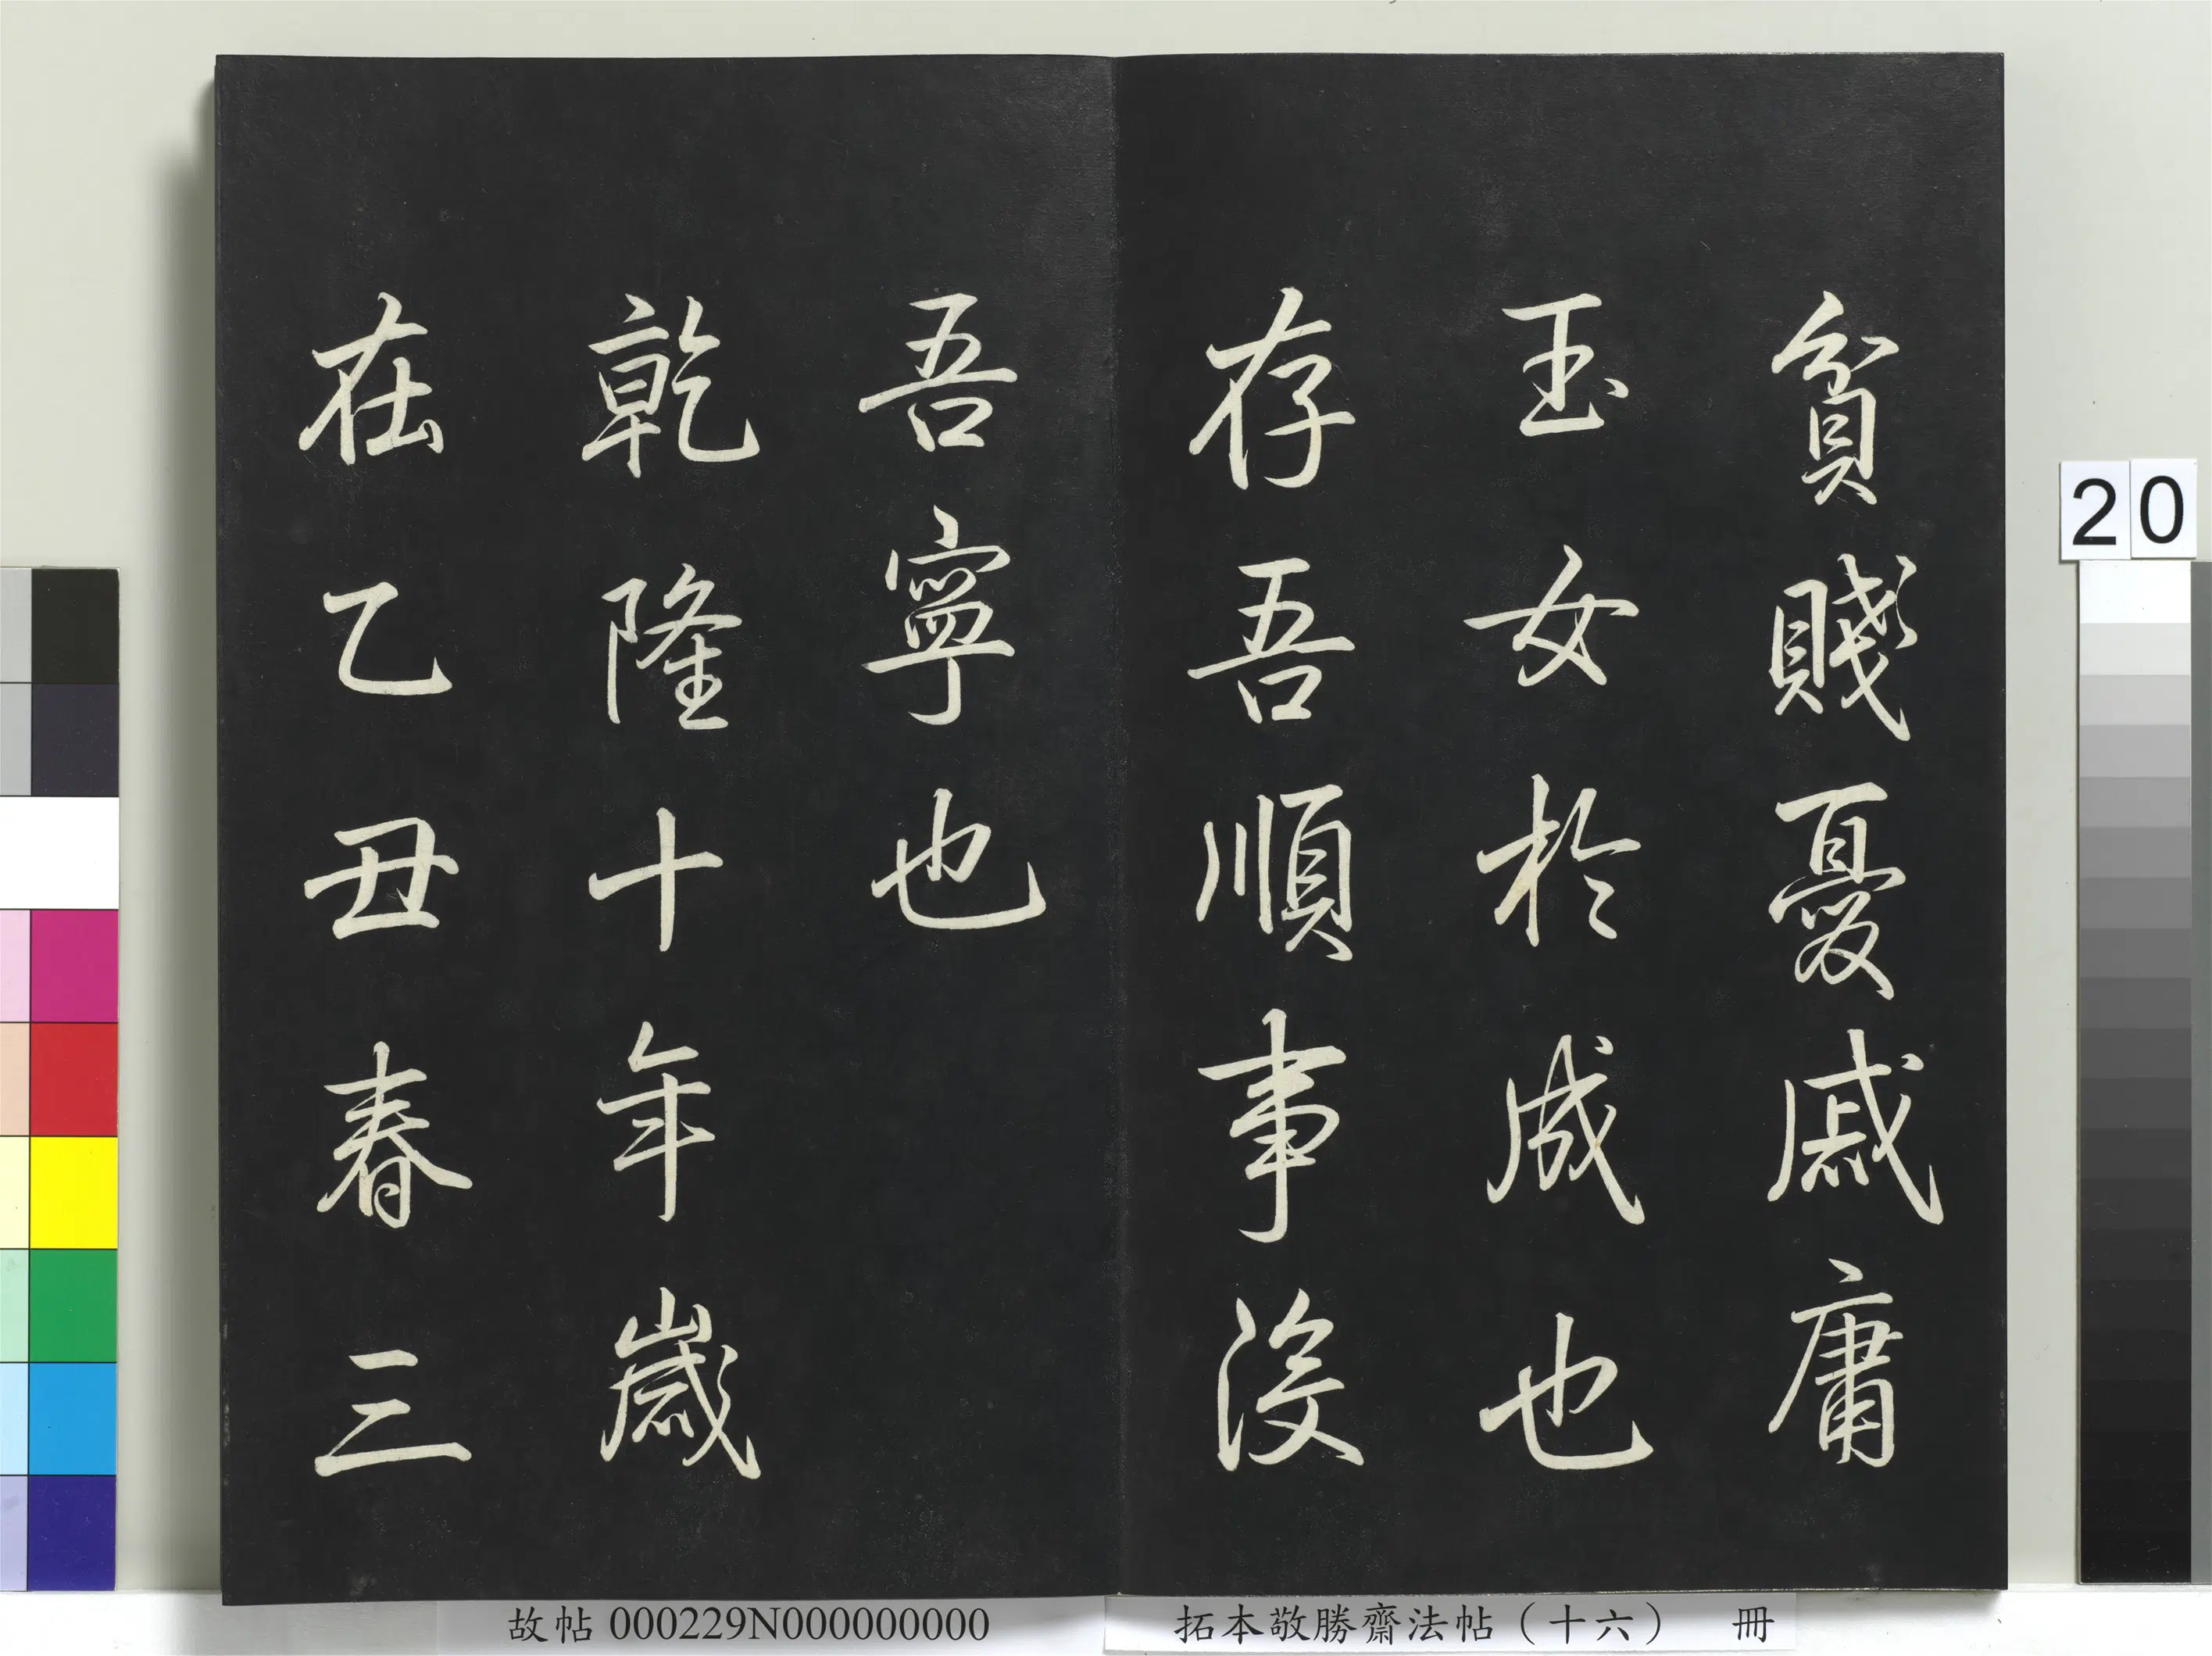 貧賤憂戚庸
玉女於成也
存吾順事沒
吾寧也
乾隆十年歲
在乙丑春三
20
故帖 000229N000000000
拓本敬勝齋法帖（十六） 冊